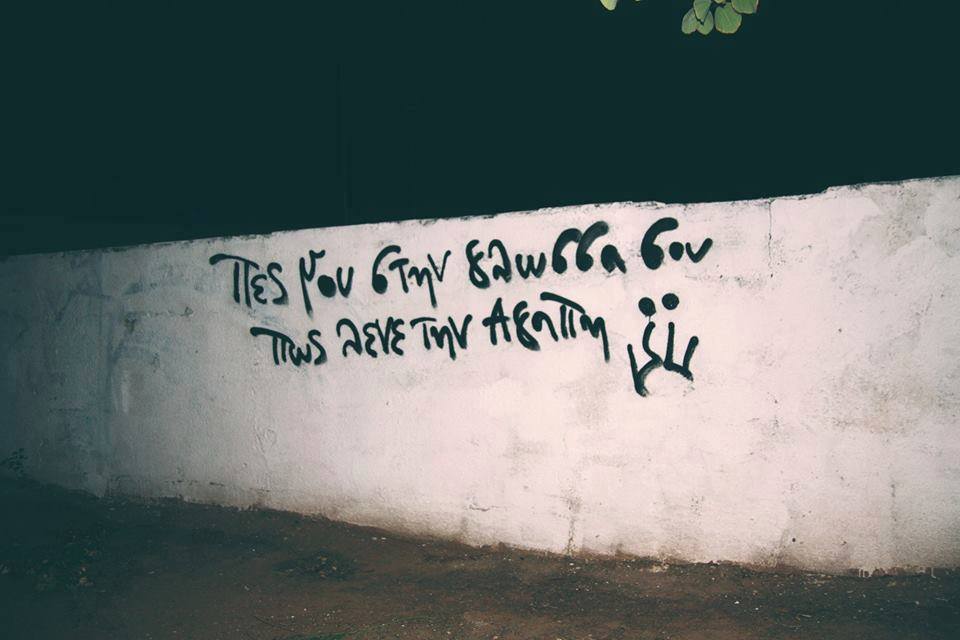 πες μου στην γλωσσα σου
πως λενε την Αγαπη